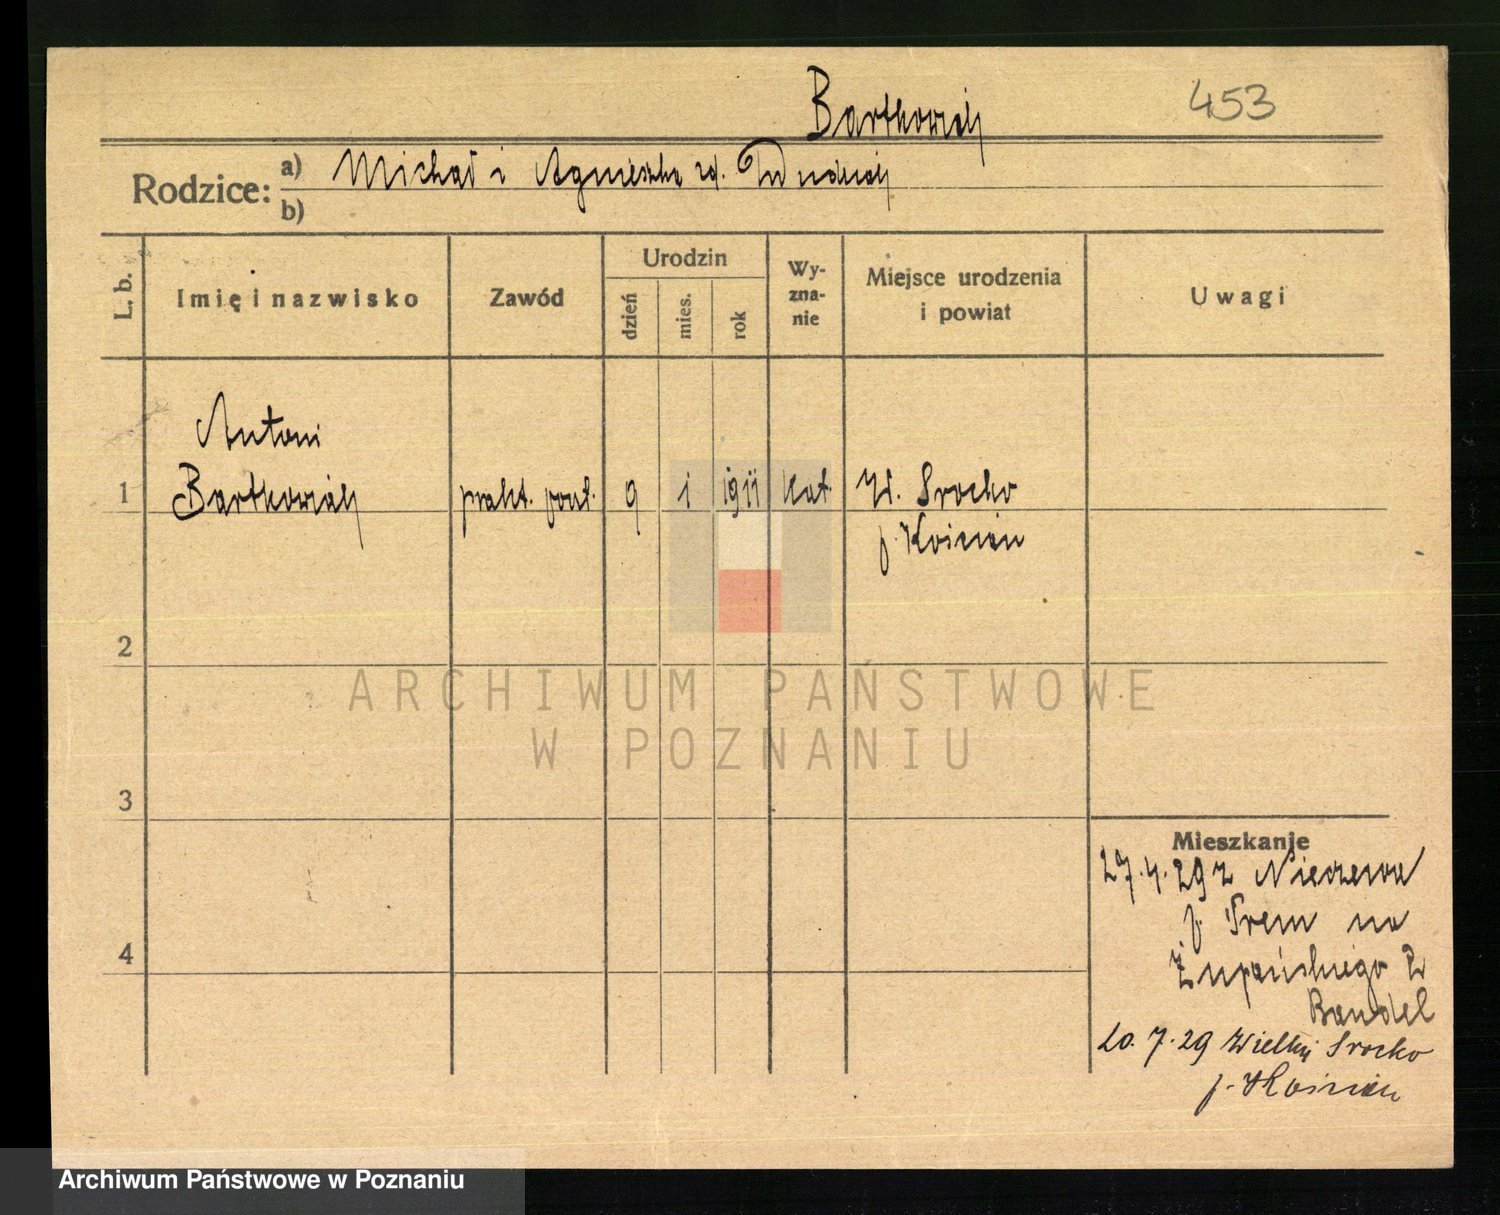 Bartkowiak
453
Rodzice: a) Michał i Agnieszka zd.
b)
L. b.
Imię i nazwisko
Zawód
Urodzin
dzień
mies.
rok
Wy-
zna-
nie
Miejsce urodzenia
i powiat
Uwagi
Antoni
1 Bartkowiak prakt. 9 1 1911 kat. W. Srocko
p. Kościan
2
3
4
Mieszkanie
27.4.29 z
p. Śrem na
Żupańskiego
Bandel
20.7.29 Wielki Srocko
p. Kościan
ARCHIWUM PAŃSTWOWE
W POZNANIU
Archiwum Państwowe w Poznaniu